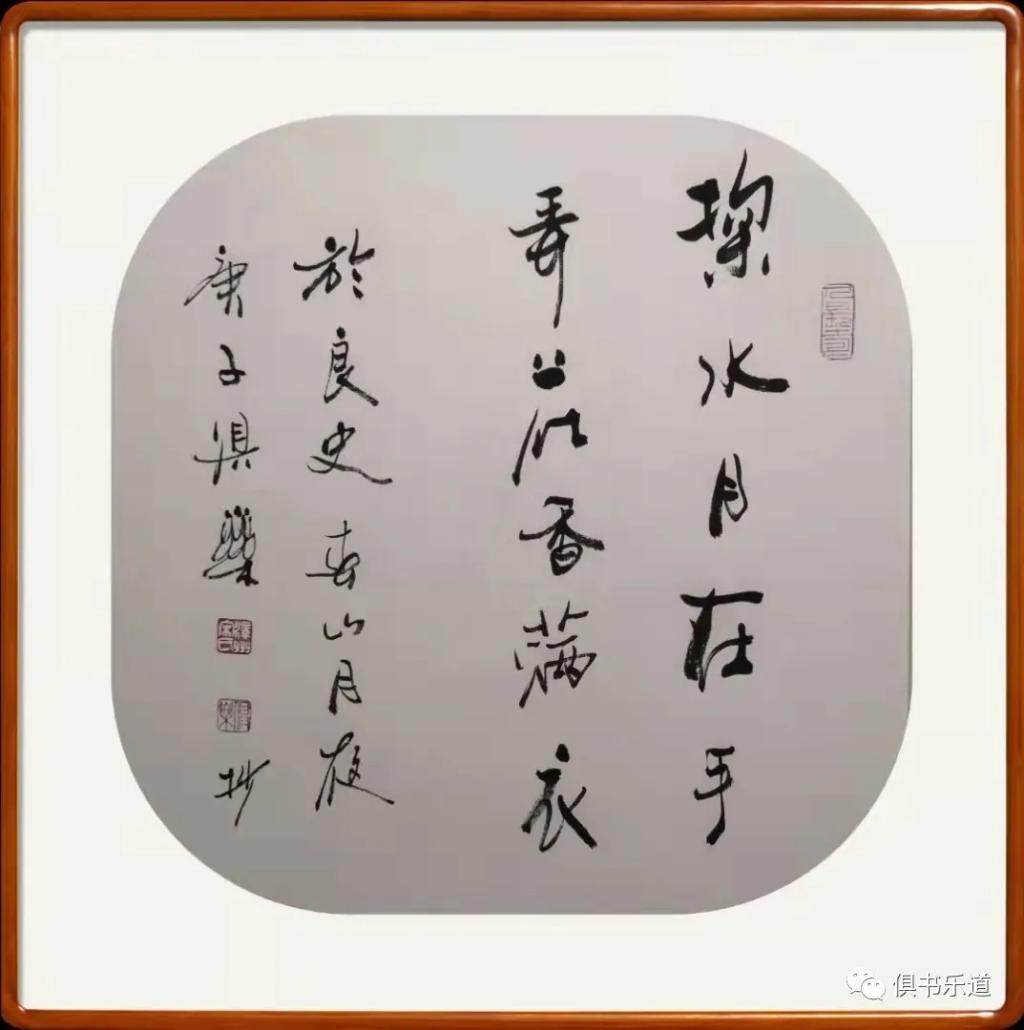 掬水月在手
弄花香满衣
於良史春山月夜
庚子俱樂抄
俱书乐道